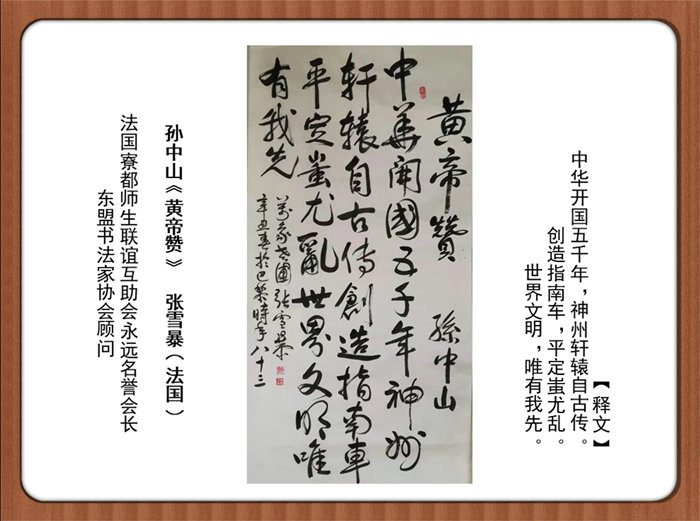 【释文】
中华开国五千年，神州轩辕自古传。
创造指南车，平定蚩尤乱。
世界文明，唯有我先。
黄帝赞 孫中山
中華開國五千年神州
軒轅自古传創造指南車
平定蚩尤亂世界文明唯
有我先
辛丑春於巴黎時年八十三
孙中山《黄帝赞》 张雪暴（法国）
法国寮都师生联谊互助会永远名誉会长
东盟书法家协会顾问